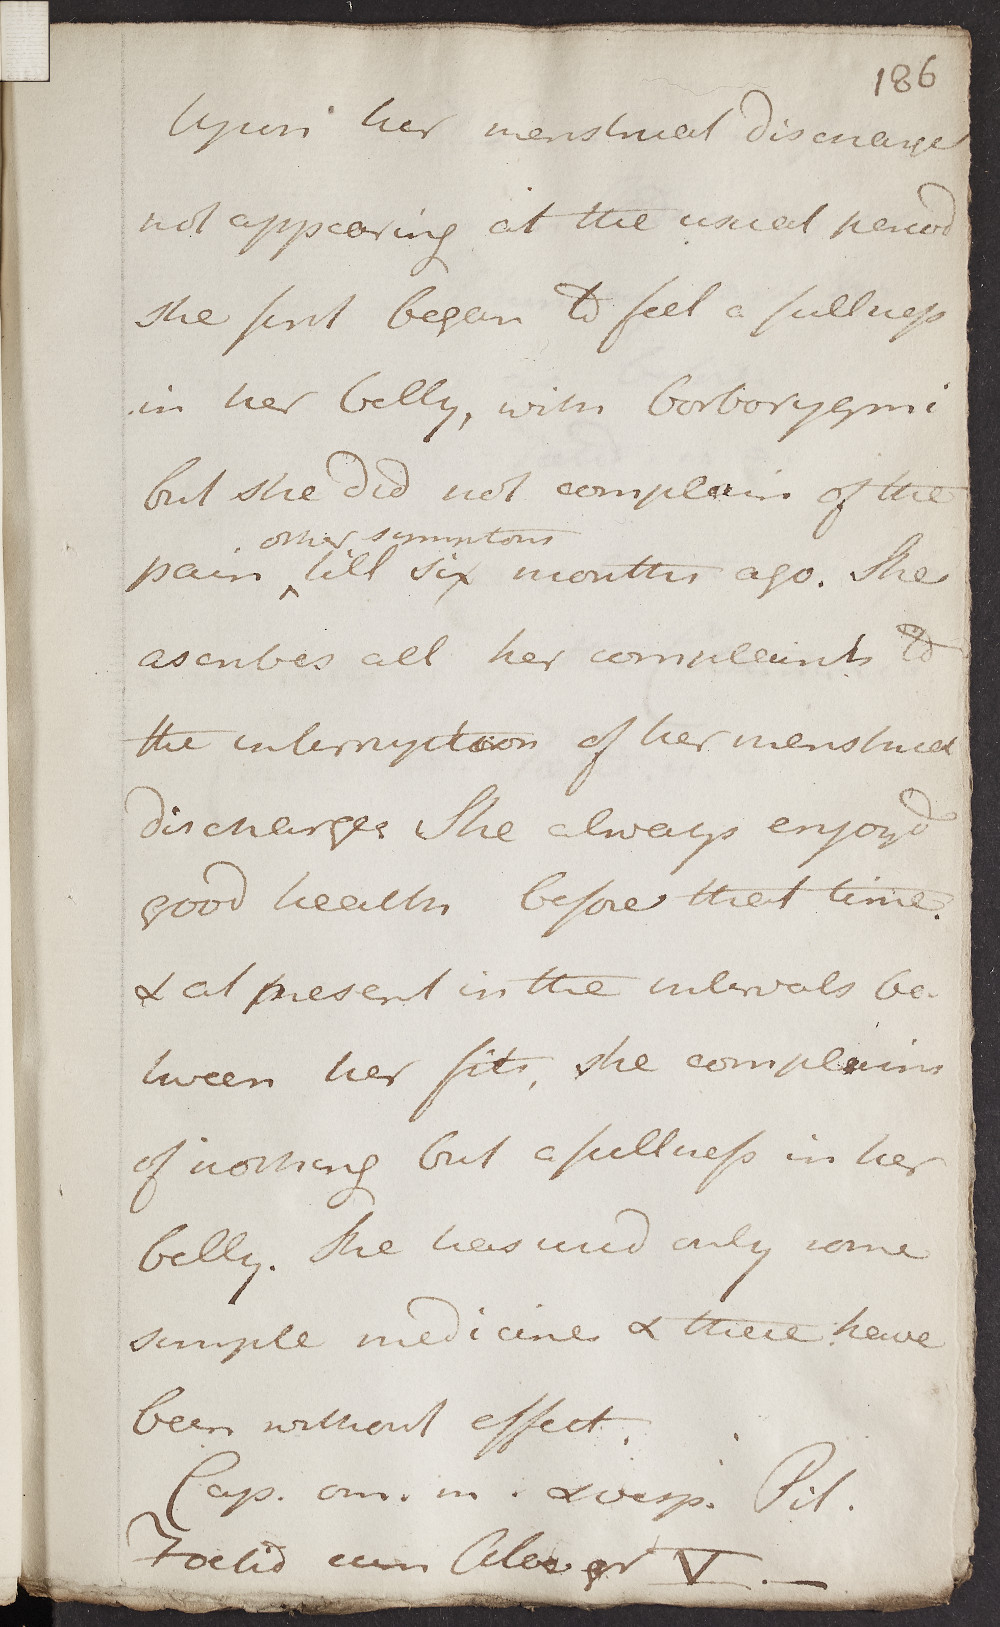 186
Upon her menstrual discharge
not appearing at the usual period
she first began to feel a fullness
in her belly, with borborygmi
but she did not complain of the
other symptoms
pain ^ till six months ago. She
ascribes all her complaints to
the interruption of her menstrual
discharges She always enjoy'd
good health before that time.
& at present in the intervals be-
tween her fits, she complains
of nothing but a fullness in her
belly. She has used only some
simple medicines & these have
been without effect.
Cap. om. m. & vesp. Pil.
Foetid cum Aloe gr V.